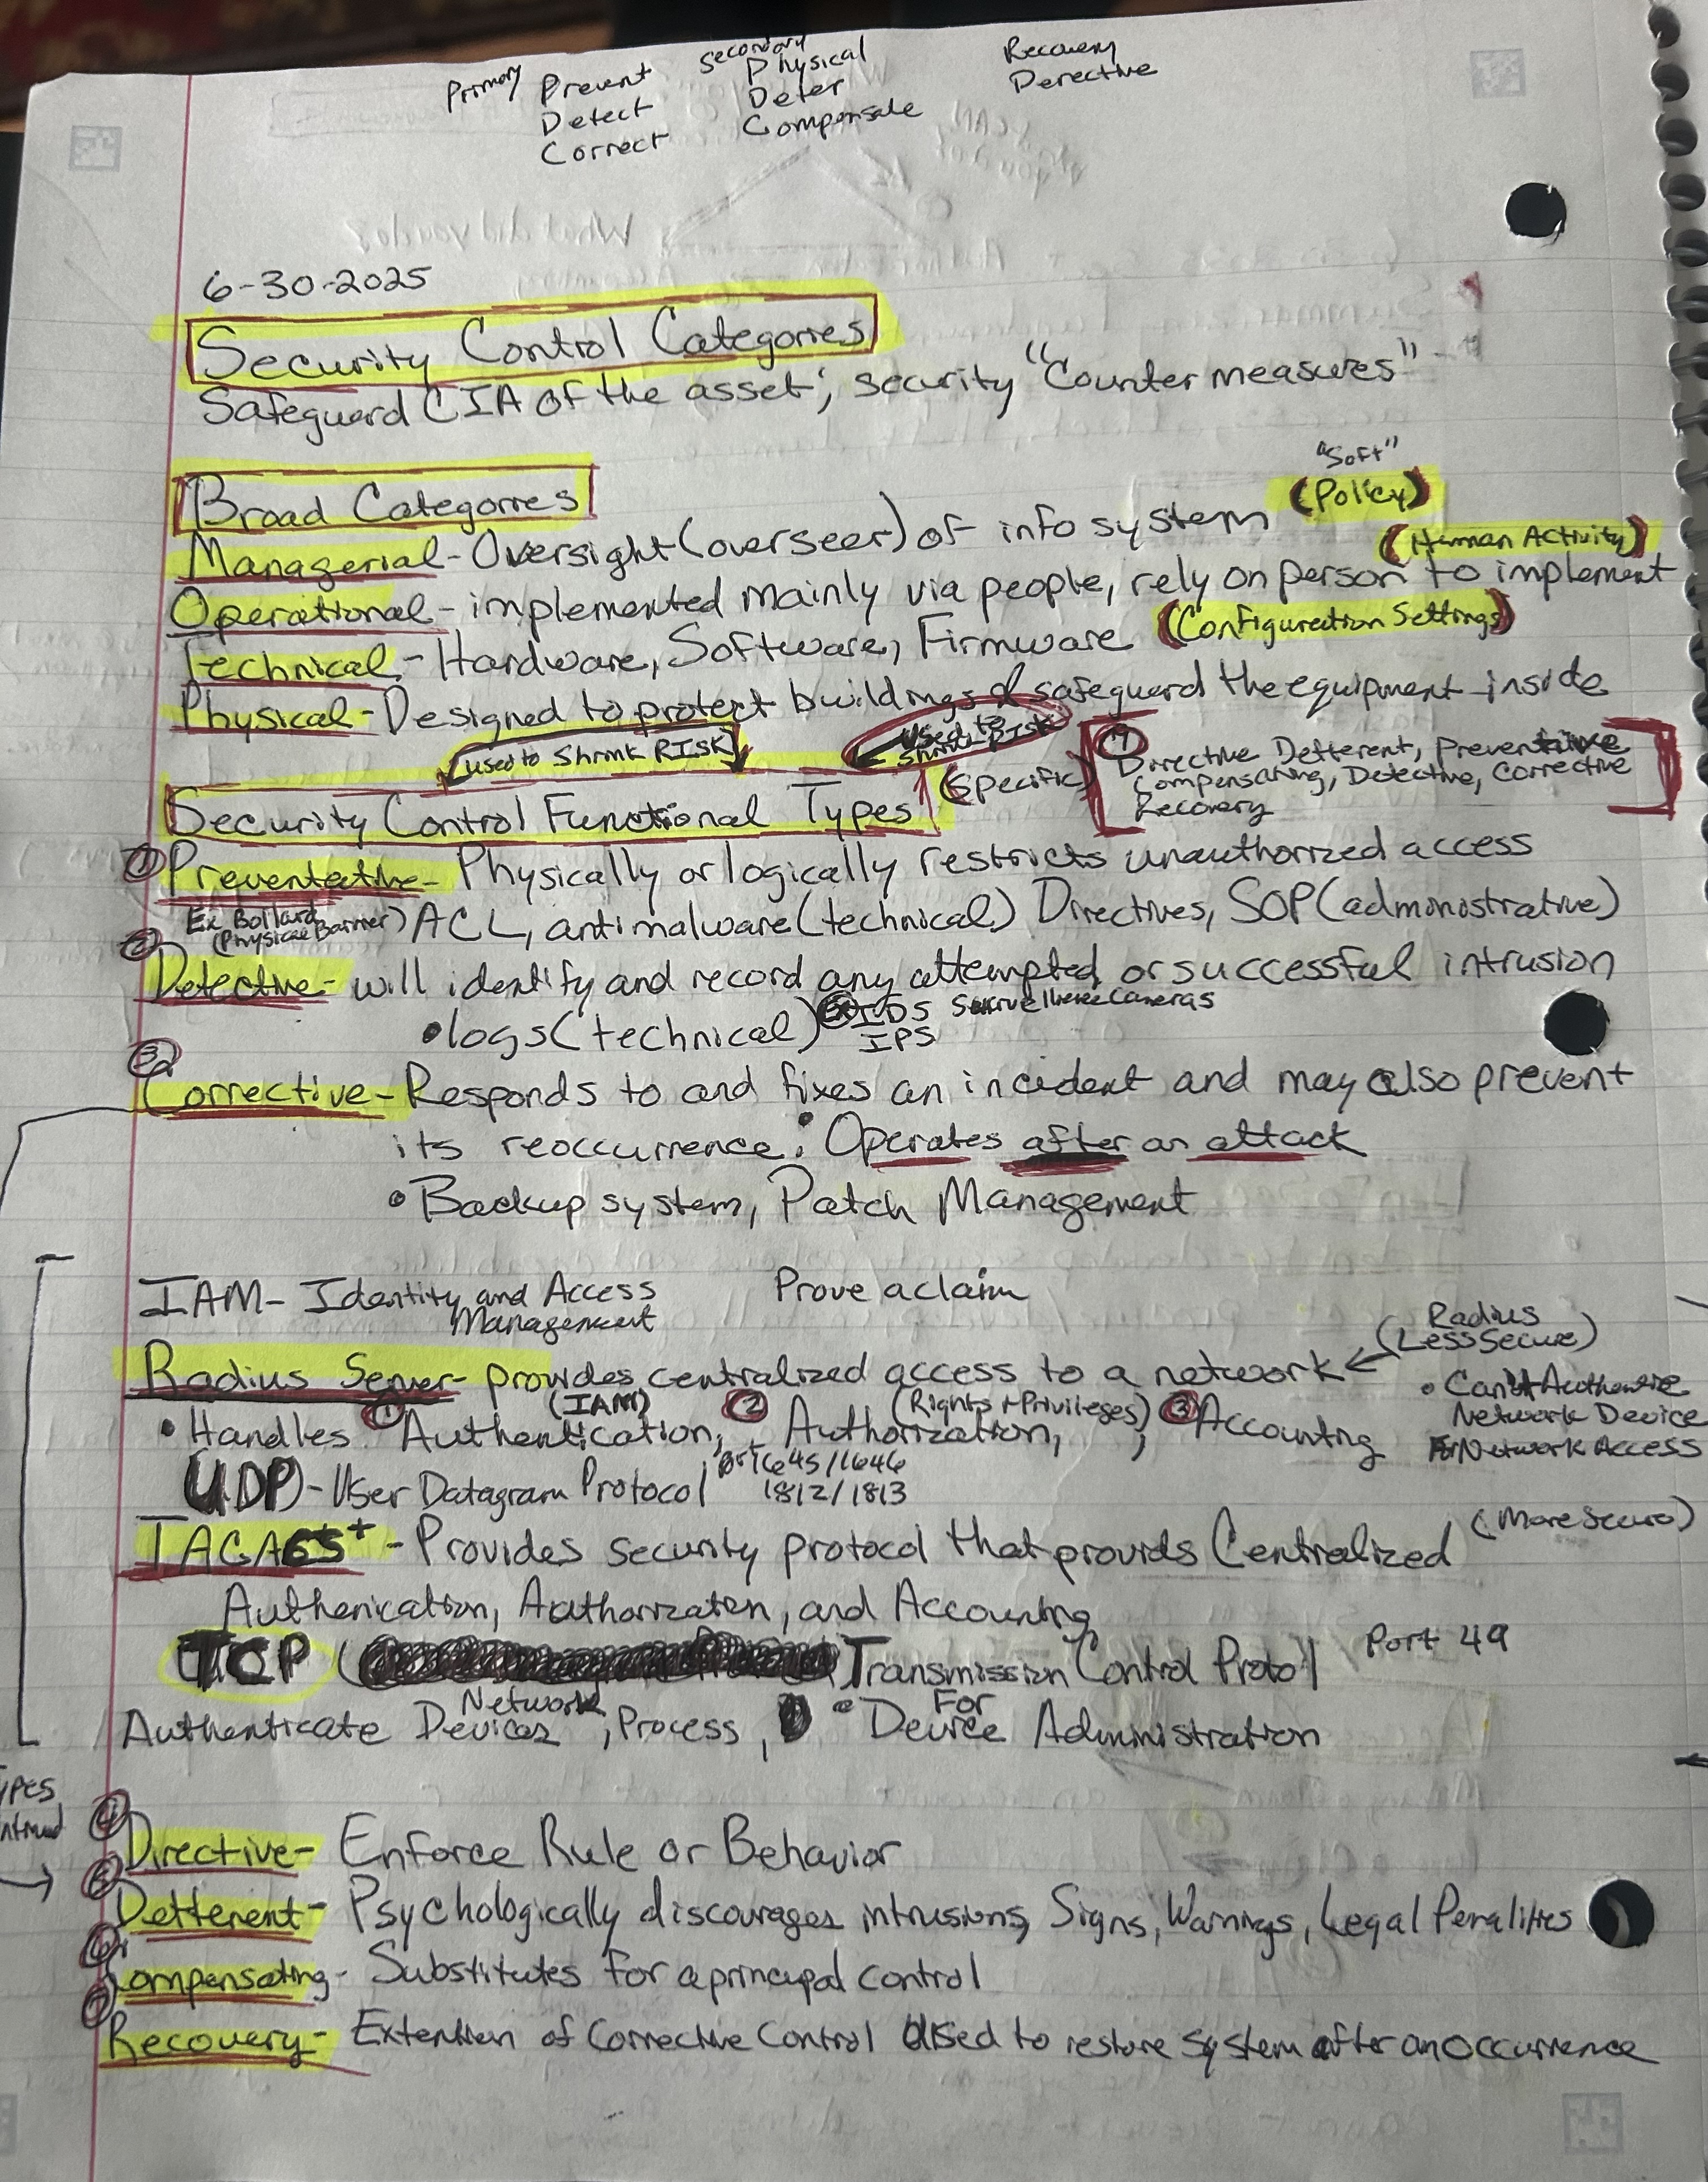 Primary Prevent secondary Physical Recovery
Detect Deter Derective
Correct Compensate
What did you do?
6-30-2025
Security Control Categories
Safeguard CIA of the asset; security "Counter measures"
"Soft"
Broad Categories
Managerial - Oversight (overseer) of info system (Policy)
(Human Activity)
Operational - implemented mainly via people, rely on person to implement
Technical - Hardware, Software, Firmware (Configuration Settings)
Physical - Designed to protect buildings & safeguard the equipment inside
(used to Shrink RISK) used to Shrink RISK
Security Control Functional Types (Specific)
Directive Defferent, Preventative
Compensating, Detective, Corrective
Recovery
① Preventative - Physically or logically restricts unauthorized access
Ex Bollard (Physical Barrier) ACL, antimalware (technical) Directives, SOP (administrative)
② Detective - will identify and record any attempted or successful intrusion
• logs (technical) Ex IDS Surveillence Cameras
IPS
③ Corrective - Responds to and fixes an incident and may also prevent
its reoccurrence. Operates after an attack
• Backup system, Patch Management
IAM - Identity and Access Management Prove a claim
Radius
(Less Secure)
Radius Server - provides centralized access to a network
• Can't Authenticate
Network Device
For Network Access
(IAM) (Rights + Privileges)
• Handles ① Authentication, ② Authorization, ③ Accounting
UDP) - User Datagram Protocol 1645/1646
1812/1813
TACACS+ - Provides security protocol that provids Centralized (More Secure)
Authenication, Authorizaton, and Accounting
TCP ( ) Transmission Control Proto'l Port 49
Authenticate Network Devices, Process, • For Device Administration
ypes
④ Directive - Enforce Rule or Behavior
⑤ Detterent - Psychologically discourages intrusions, Signs, Warnings, Legal Penalities
⑥ Compensating - Substitutes for a principal control
⑦ Recovery - Extention of Corrective Control Used to restore system after an occurrence